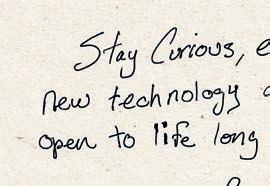 Stay Curious, e
new technology
open to life long